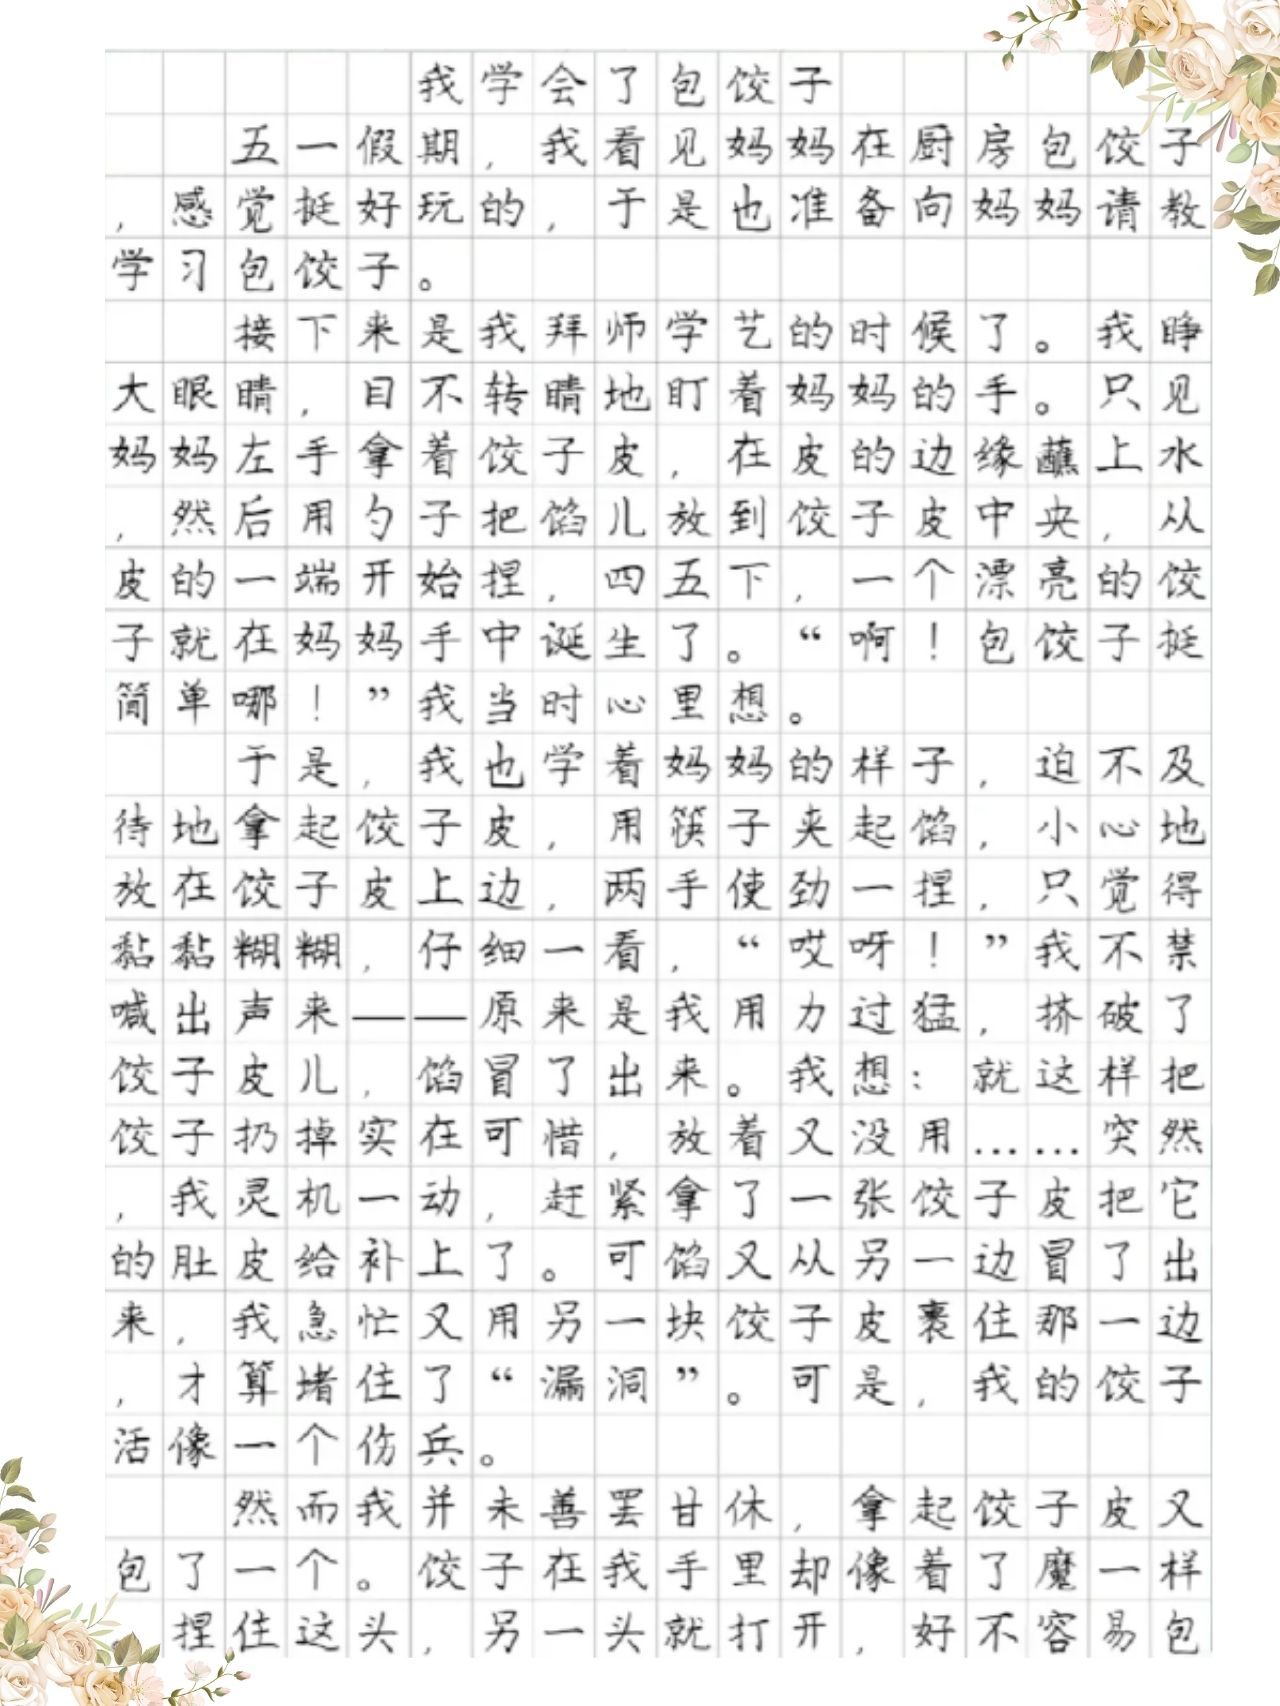 我学会了包饺子
五一假期，我看见妈妈在厨房包饺子
，感觉挺好玩的，于是也准备向妈妈请教
学习包饺子。
接下来是我拜师学艺的时候了。我睁
大眼睛，目不转睛地盯着妈妈的手。只见
妈妈左手拿着饺子皮，在皮的边缘蘸上水
，然后用勺子把馅儿放到饺子皮中央，从
皮的一端开始捏，四五下，一个漂亮的饺
子就在妈妈手中诞生了。“啊！包饺子挺
简单哪！”我当时心里想。
于是，我也学着妈妈的样子，迫不及
待地拿起饺子皮，用筷子夹起馅，小心地
放在饺子皮上边，两手使劲一捏，只觉得
黏黏糊糊，仔细一看，“哎呀！”我不禁
喊出声来——原来是我用力过猛，挤破了
饺子皮儿，馅冒了出来。我想：就这样把
饺子扔掉实在可惜，放着又没用……突然
，我灵机一动，赶紧拿了一张饺子皮把它
的肚皮给补上了。可馅又从另一边冒了出
来，我急忙又用另一块饺子皮裹住那一边
，才算堵住了“漏洞”。可是，我的饺子
活像一个伤兵。
然而我并未善罢甘休，拿起饺子皮又
包了一个。饺子在我手里却像着了魔一样
捏住这头，另一头就打开，好不容易包